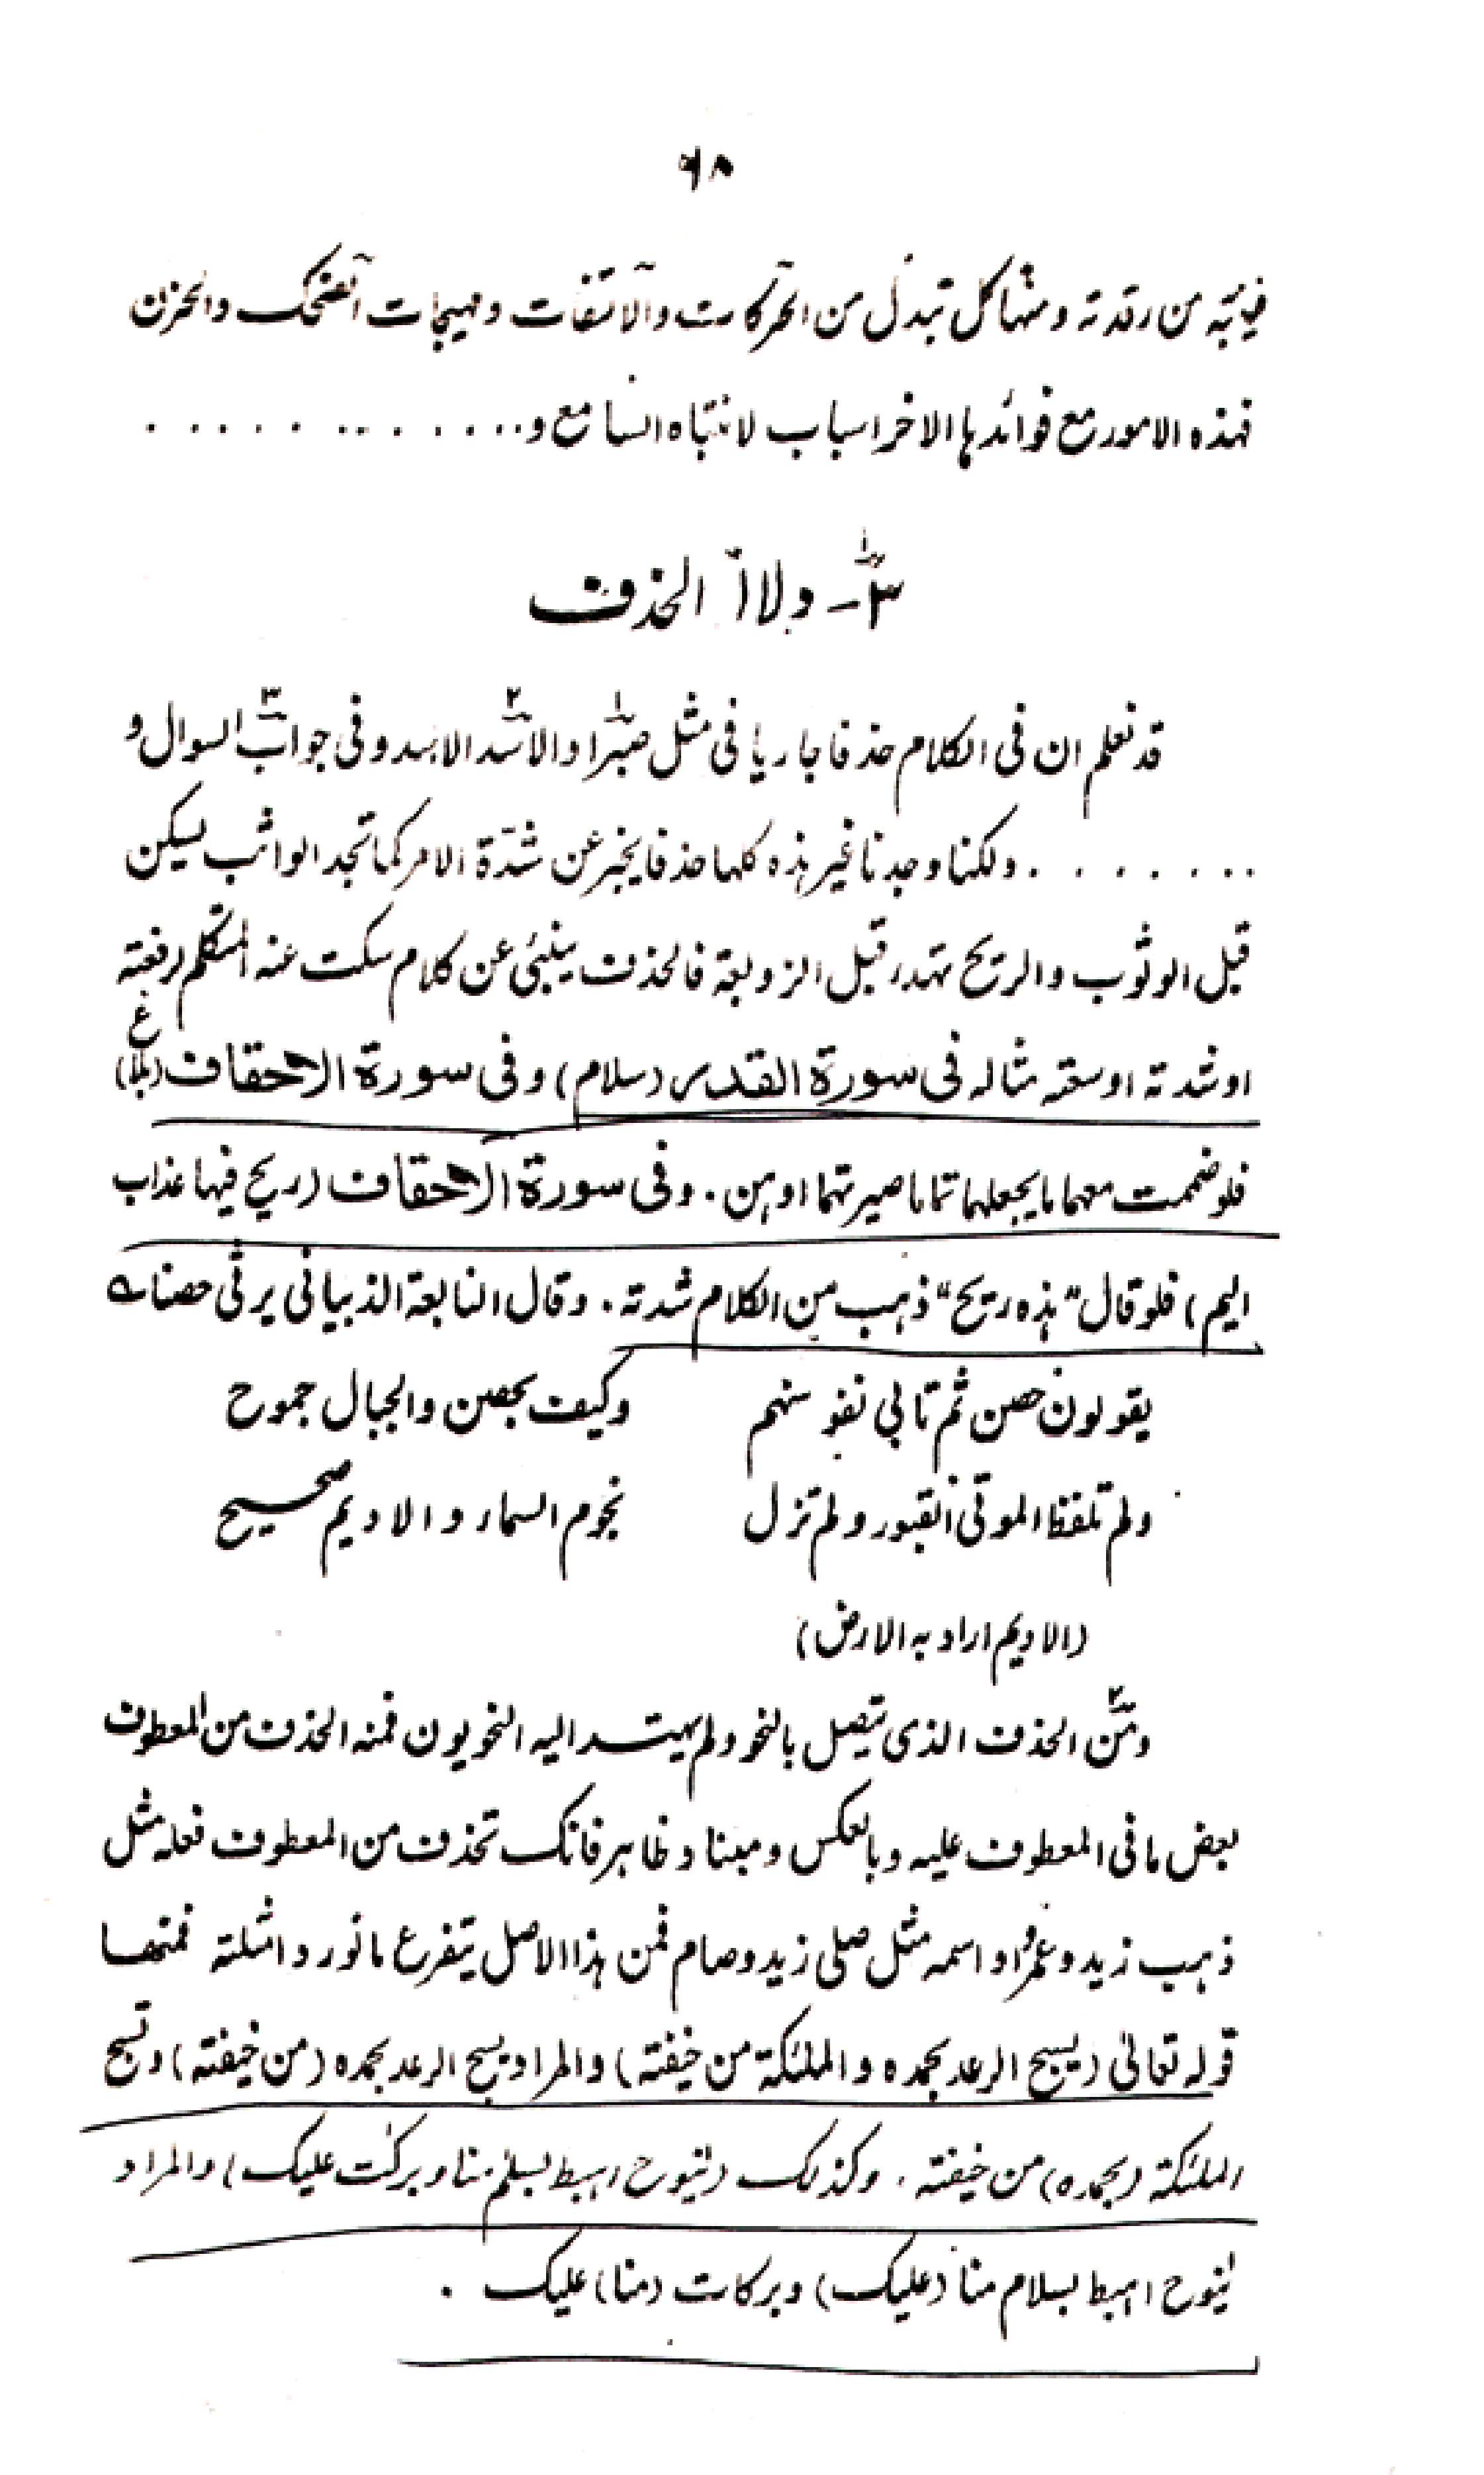 ٦٨
فينبّه من رقدته ومشاكل تبدل من الحركات والآلتفات ومهيجات الضحك والحزن
فهذه الامور مع فوائدها الاخر اسباب لانتباه السامع و. . . . . . . . . . . .
٣ـ دلالة الحذف
قد نعلم ان فى الكلام حذفا جاريا فى مثل صبرًا والاسد الاسد وفى جواب السوال و
. . . . . . . ولكنا وجدنا غير هذه كلها حذفا يخبر عن شدّة الامر كما تجد الواثب يسكن
قبل الوثوب والريح تهدر قبل الزوبعة فالحذف ينبئ عن كلام سكت عنه المتكلم رفعته
او شدته او سعته مثاله فى سورة القدر (سلام) وفى سورة الاحقاف (بلاغ)
فلو ضممت معهما ما يجعلهما تماما صيرتهما اوهن. وفى سورة الاحقاف (ريح فيها عذاب
اليم) فلو قال "هذه ريح" ذهب من الكلام شدته. وقال النابغة الذبيانى يرثى حصنا ه
يقولون حصن ثم تابى نفوسهم وكيف بحصن والجبال جموح
ولم تلفظ الموتى القبور ولم تزل نجوم السماء والاديم صحيح
(الاديم اراد به الارض)
ومن الحذف الذى يتصل بالنحو ولم يهتد اليه النحويون فمنه الحذف من المعطوف
بعض ما فى المعطوف عليه وبالعكس ومبناه ظاهر فانك تحذف من المعطوف فعله مثل
ذهب زيد وعمرو او اسمه مثل صلى زيد وصام فمن هذا الاصل يتفرع ما نورد امثلته فمنها
قوله تعالىٰ (يسبح الرعد بحمده والملٰئكة من خيفته) والمراد يسبح الرعد بحمده (من خيفته) وتسبح
الملٰئكة (بحمده) من خيفته. وكذلك (ينوح اهبط بسلٰم منا وبركٰت عليك) والمراد
ينوح اهبط بسلام منا (عليك) وبركات (منا) عليك.